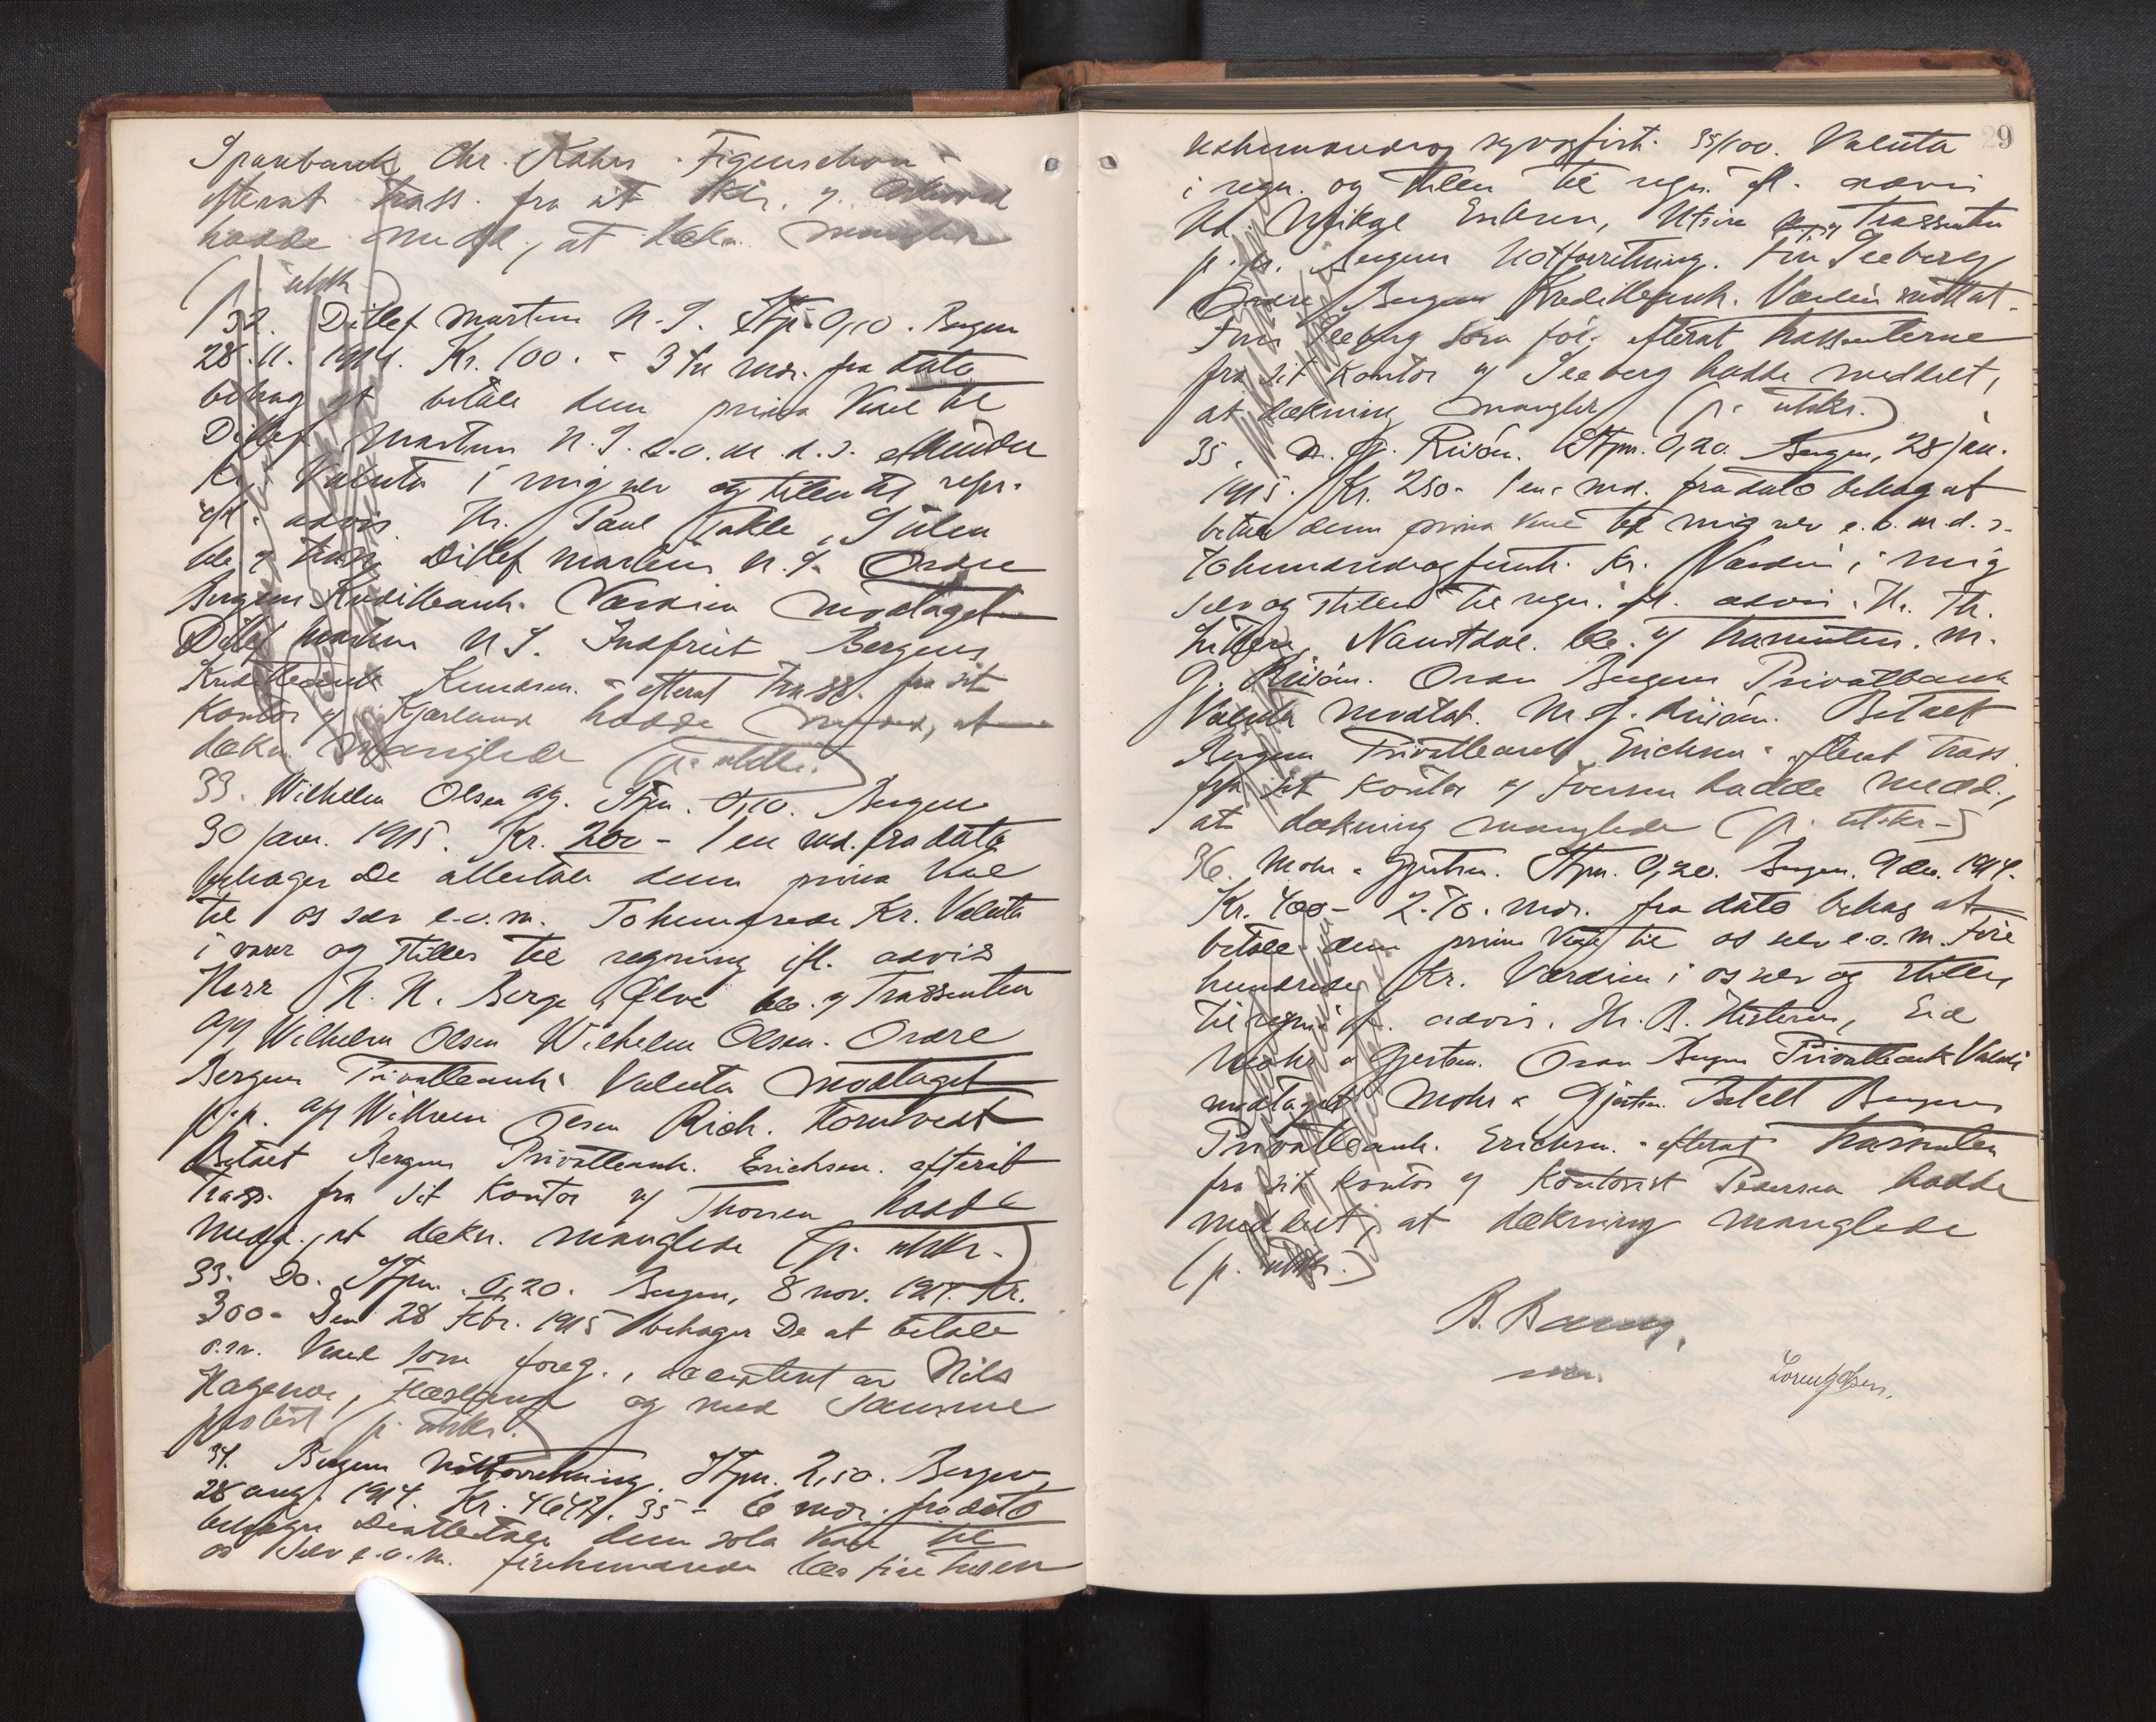 Sparebank Chr. Kahrs Figenschou
efterat trass. fra sit Ktr. v.
hadde medd., at dækn. mangler
(p. utskr.)
32. Ditlef Martens N.S. Stpm. 0,10. Bergen
28.11.1914. Kr. 100.- 3 tre mdr. fra dato
behag at betale denne prima Vexel til
Ditlef Martens N.S. e.o.m. d.s. ethundre
Kr. Valuta i mig selv og stilles til regn.
ifl. advis Hr. Paul Takle, Sulen
bl. v. trass. Ditlef Martens N.S. Ordre
Bergens Kreditbank. Værdien modtaget
Ditlef Martens N.S. Indfriet Bergens
Kreditbank Knudsen. - efterat trass. fra sit
Kontor v/ Kjærland hadde medd., at
dækn. manglede (p. utskr.)
33. Wilhelm Olsen a/s. Stpm. 0,10. Bergen
30 jan. 1915. Kr. 200- 1 en md. fra dato
behager De at betale denne prima Vexel
til os selv e.o.m. Tohundrede Kr. Valuta
i varer og stilles til regning ifl. advis
Herr N. N. Berge, Ølve bl. v/ Trassenten
a/s Wilhelm Olsen Wilhelm Olsen. Ordre
Bergens Privatbank. Valuta modtaget
p.p. a/s Wilhelm Olsen Rich. Tornkvedt
Betalt Bergens Privatbank. Erichsen. efterat
Trass. fra sit Kontor v/ Thorsen hadde
medd., at dækn. manglede (p. utskr.)
33. Do. Stpm. 0,20. Bergen, 8 nov. 1914. Kr.
300- Den 28 Febr. 1915 behager De at betale
o.s.v. Vexel som foreg., accepteret av Nils
og med samme
protest (p. utskr.)
34. Bergens Notforretning. Stpm. 2,50. Bergen
28 aug. 1914. Kr. 4647,35 - 6 mdr. fra dato
behager De at betale denne sola Vexel til
os selv e.o.m. firehundrede fire tusen
29
sekshundreog syvogfirti 35/100. Valuta
i regn. og stilles til regn. ifl. advis
Hd. Mikal Eriksen, Utsire Trassenten
p. pr. Bergens Notforretning. Finn Seeberg
Ordre Bergens Kreditbank. Værdien modtat.
Finn Seeberg som før. efterat trassenterne
fra sit Kontor v/ Seeberg hadde meddelt,
at dækning mangler (p. utskr.)
35. M. G. Risøen. Stpm. 0,20. Bergen, 28 jan.
1915. Kr. 250- 1 en md. fra dato behag at
betale denne prima Vexel til mig selv e.o.m.d.s.
Tohundredeogfemti Kr. Værdien i mig
selv og stilles til regn. ifl. advis. Hr. Th.
Naustdal. bl. v/ trassenten. M.
G. Risøen. Ordre Bergens Privatbank
Valuta modtat. M. G. Risøen. Betalt
Bergens Privatbank Erichsen - efterat trass.
fra sit Kontor v/ Iversen hadde medd.,
at dækning manglede (p. utskr.)
36. Mohr & Gjertsen. Stpm. 0,20. Bergen. 9 des. 1914.
Kr. 400- 2.To. mdr. fra dato behag at
betale denne prima Vexel til os selv e.o.m. Fire
hundrede Kr. Værdien i os selv og stilles
til regn. ifl. advis. Hr. B. Eid
Mohr & Gjertsen. Ordre Bergens Privatbank Valuta
modtaget Mohr & Gjertsen. Betalt Bergens
Privatbank. Erichsen. - efterat trassenten
fra sit Kontor v/ Kontorist Pedersen hadde
meddelt, at dækning manglede
(p. utskr.)
B.
Lorentz Olsen.